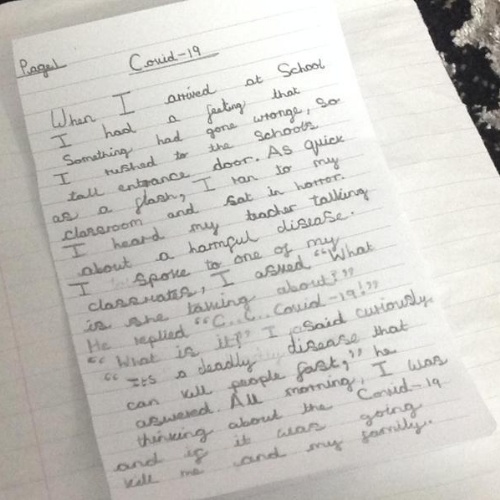 Page1
Covid-19
When I arrived at School
I had a feeling that
Something had gone wronge, so
I rushed to the schools
tall entrance door. As quick
as a flash, I ran to my
classroom and sat in horror.
I heard my teacher talking
about a harmful disease.
I spoke to one of my
classmates, I asked "What
is she talking about?"
He replied "C...C...Covid-19!"
"What is it?" I said curiously.
"It's a deadly disease that
can kill people fast," he
answered. All morning, I was
thinking about the Covid-19
and if it was going
kill me and my family.